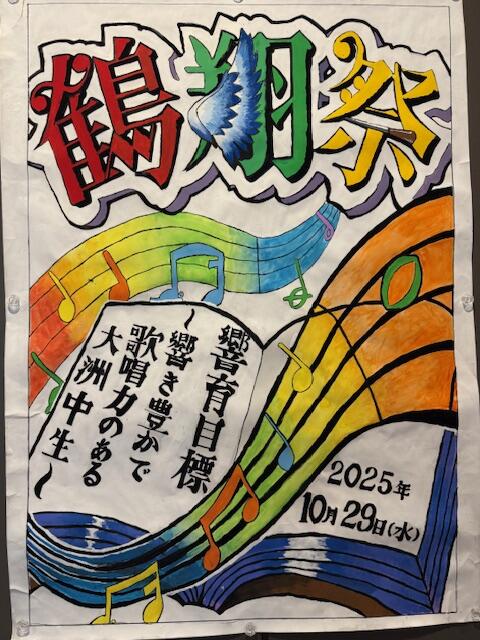 鶴翔祭
響育目標
～響き豊かで
歌唱力のある
大洲中生～
2025年
10月29日(水)